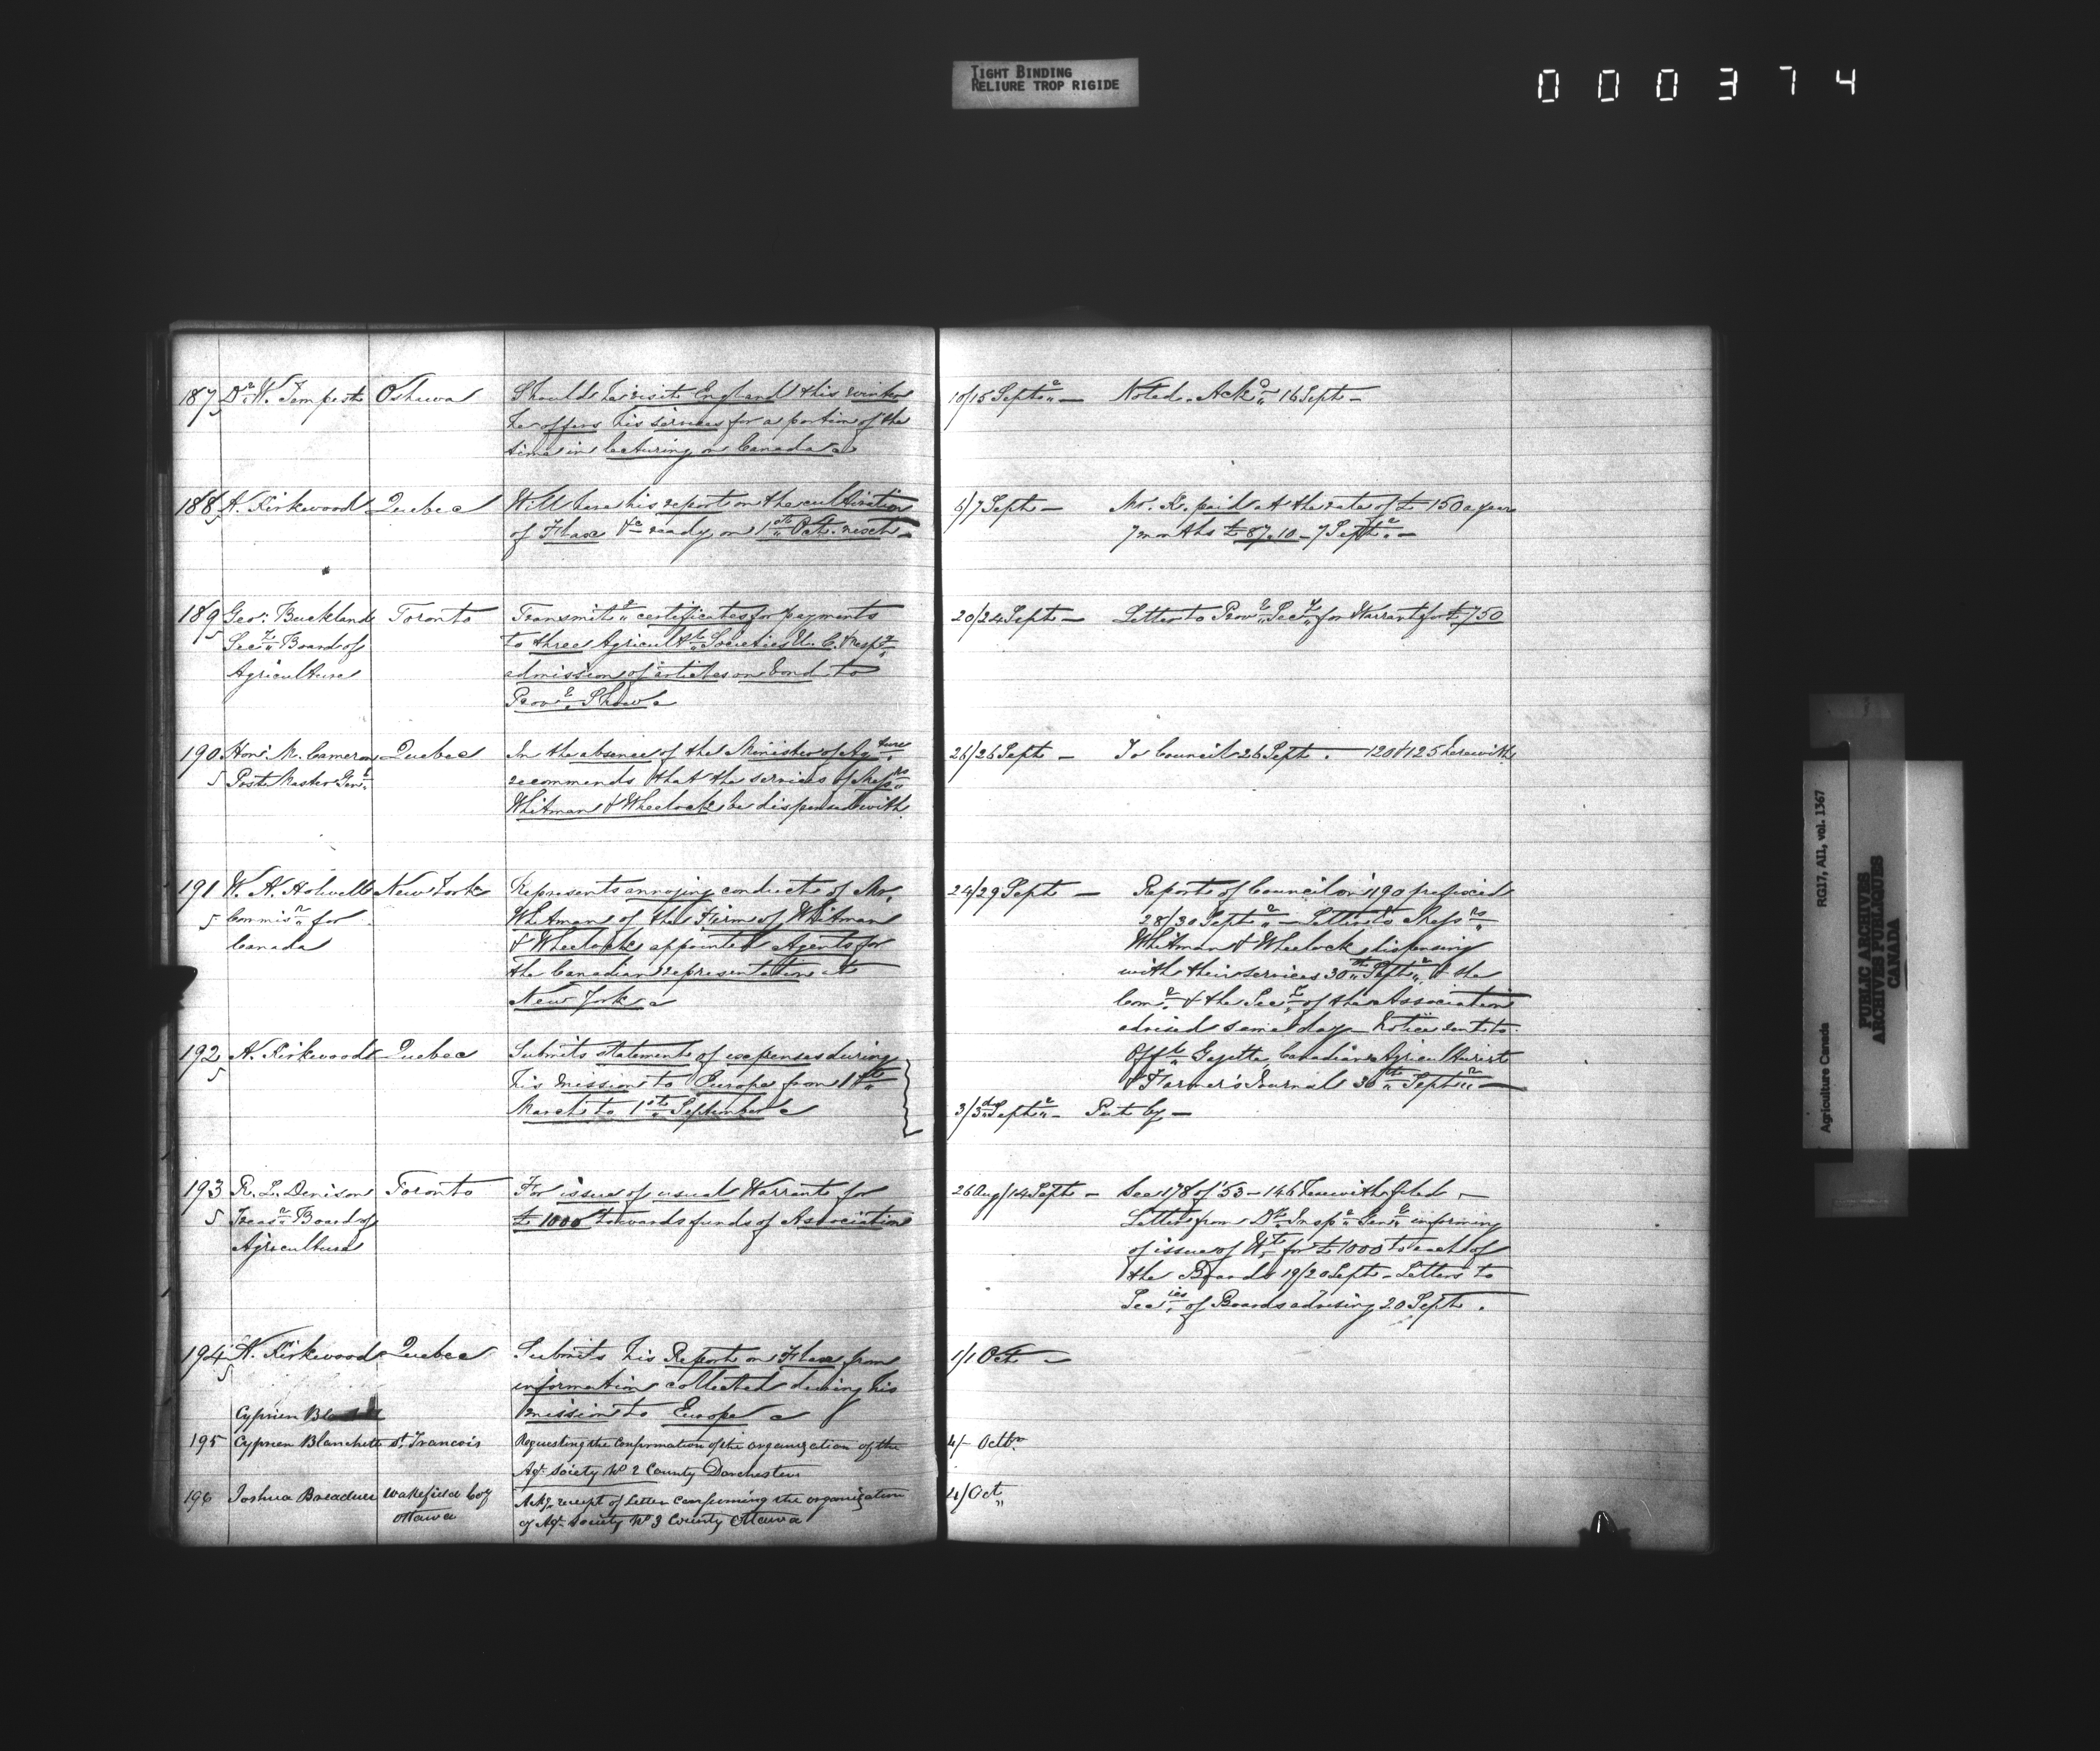 TIGHT BINDING
RELIURE TROP RIGIDE
000374
187 Dr W. Tempest Oshawa Should he visit England this winter 10/15 Septr — Noted. Ackd 16 Sept —
5 he offers his services for a portion of the
time in lecturing on Canada
188 A. Kirkwood Quebec Will have his report on the cultivation 6/7 Sept — Mr. K. paid at the rate of £150 a year
5 of Flax &c ready on 1st Oct. next — 7 months £87.10 — 7 Septr. —
189 Geo: Buckland Toronto Transmitg certificates for payments 20/24 Sept — Letter to Provl Secy for Warrant for £750
5 Secy Board of to three Agricultl Societies U.C. & respg
Agriculture admission of articles in bond to
Provl Show
190 Hon: M. Cameron Quebec In the absence of the Minister of Agture 26/26 Sept — To Council 26 Sept. — 120 & 125 herewith
5 Post Master Genl. recommends that the services of Messrs
Whitman & Wheelock be dispensed with
191 W. A. Holwell New York Represents annoying conduct of Mr. 24/29 Sept — Reports of Council on 190 prefixed
5 Commisr for Whitman of the Firm of Whitman 28/30 Septr — Letter to Messrs
Canada & Wheelock appointed Agents for Whitman & Wheelock dispensing
the Canadian representation at with their services 30th Septr, & the
New York Comr. & the Secy of the Association
advised same day — Notice sent to
192 A. Kirkwood Quebec Submits statement of expenses during Offl Gazette Canadian Agriculturist
5 his mission to Europe from 1st & Farmer's Journal 30th Septr —
March to 1st September 3/3d Septr — Put by —
193 R. L. Denison Toronto For issue of usual Warrant for 26 Aug/14 Sept — See 178 of '53 — 146 herewith filed —
5 Treasr Board of £1000 towards funds of Association Letter from Dy Inspr Genl informing
Agriculture of issue of Wt. for £1000 to each of
the Boards 19/20 Sept — Letters to
Secies of Boards advising 20 Sept.
194 A. Kirkwood Quebec Submits his Report on Flax from 1/1 Oct —
5 information collected during his
Cyprien mission to Europe
195 Cyprien Blanchette St Francois Requesting the confirmation of the organization of the 4/– Octbr
Agl Society No 2 County Dorchester
196 Joshua Breadner Wakefield Coy Ackg receipt of Letter confirming the organization 4/ Oct
Ottawa of Agl Society No 3 County Ottawa
Agriculture Canada RG17, AII, vol. 1367
PUBLIC ARCHIVES
ARCHIVES PUBLIQUES
CANADA